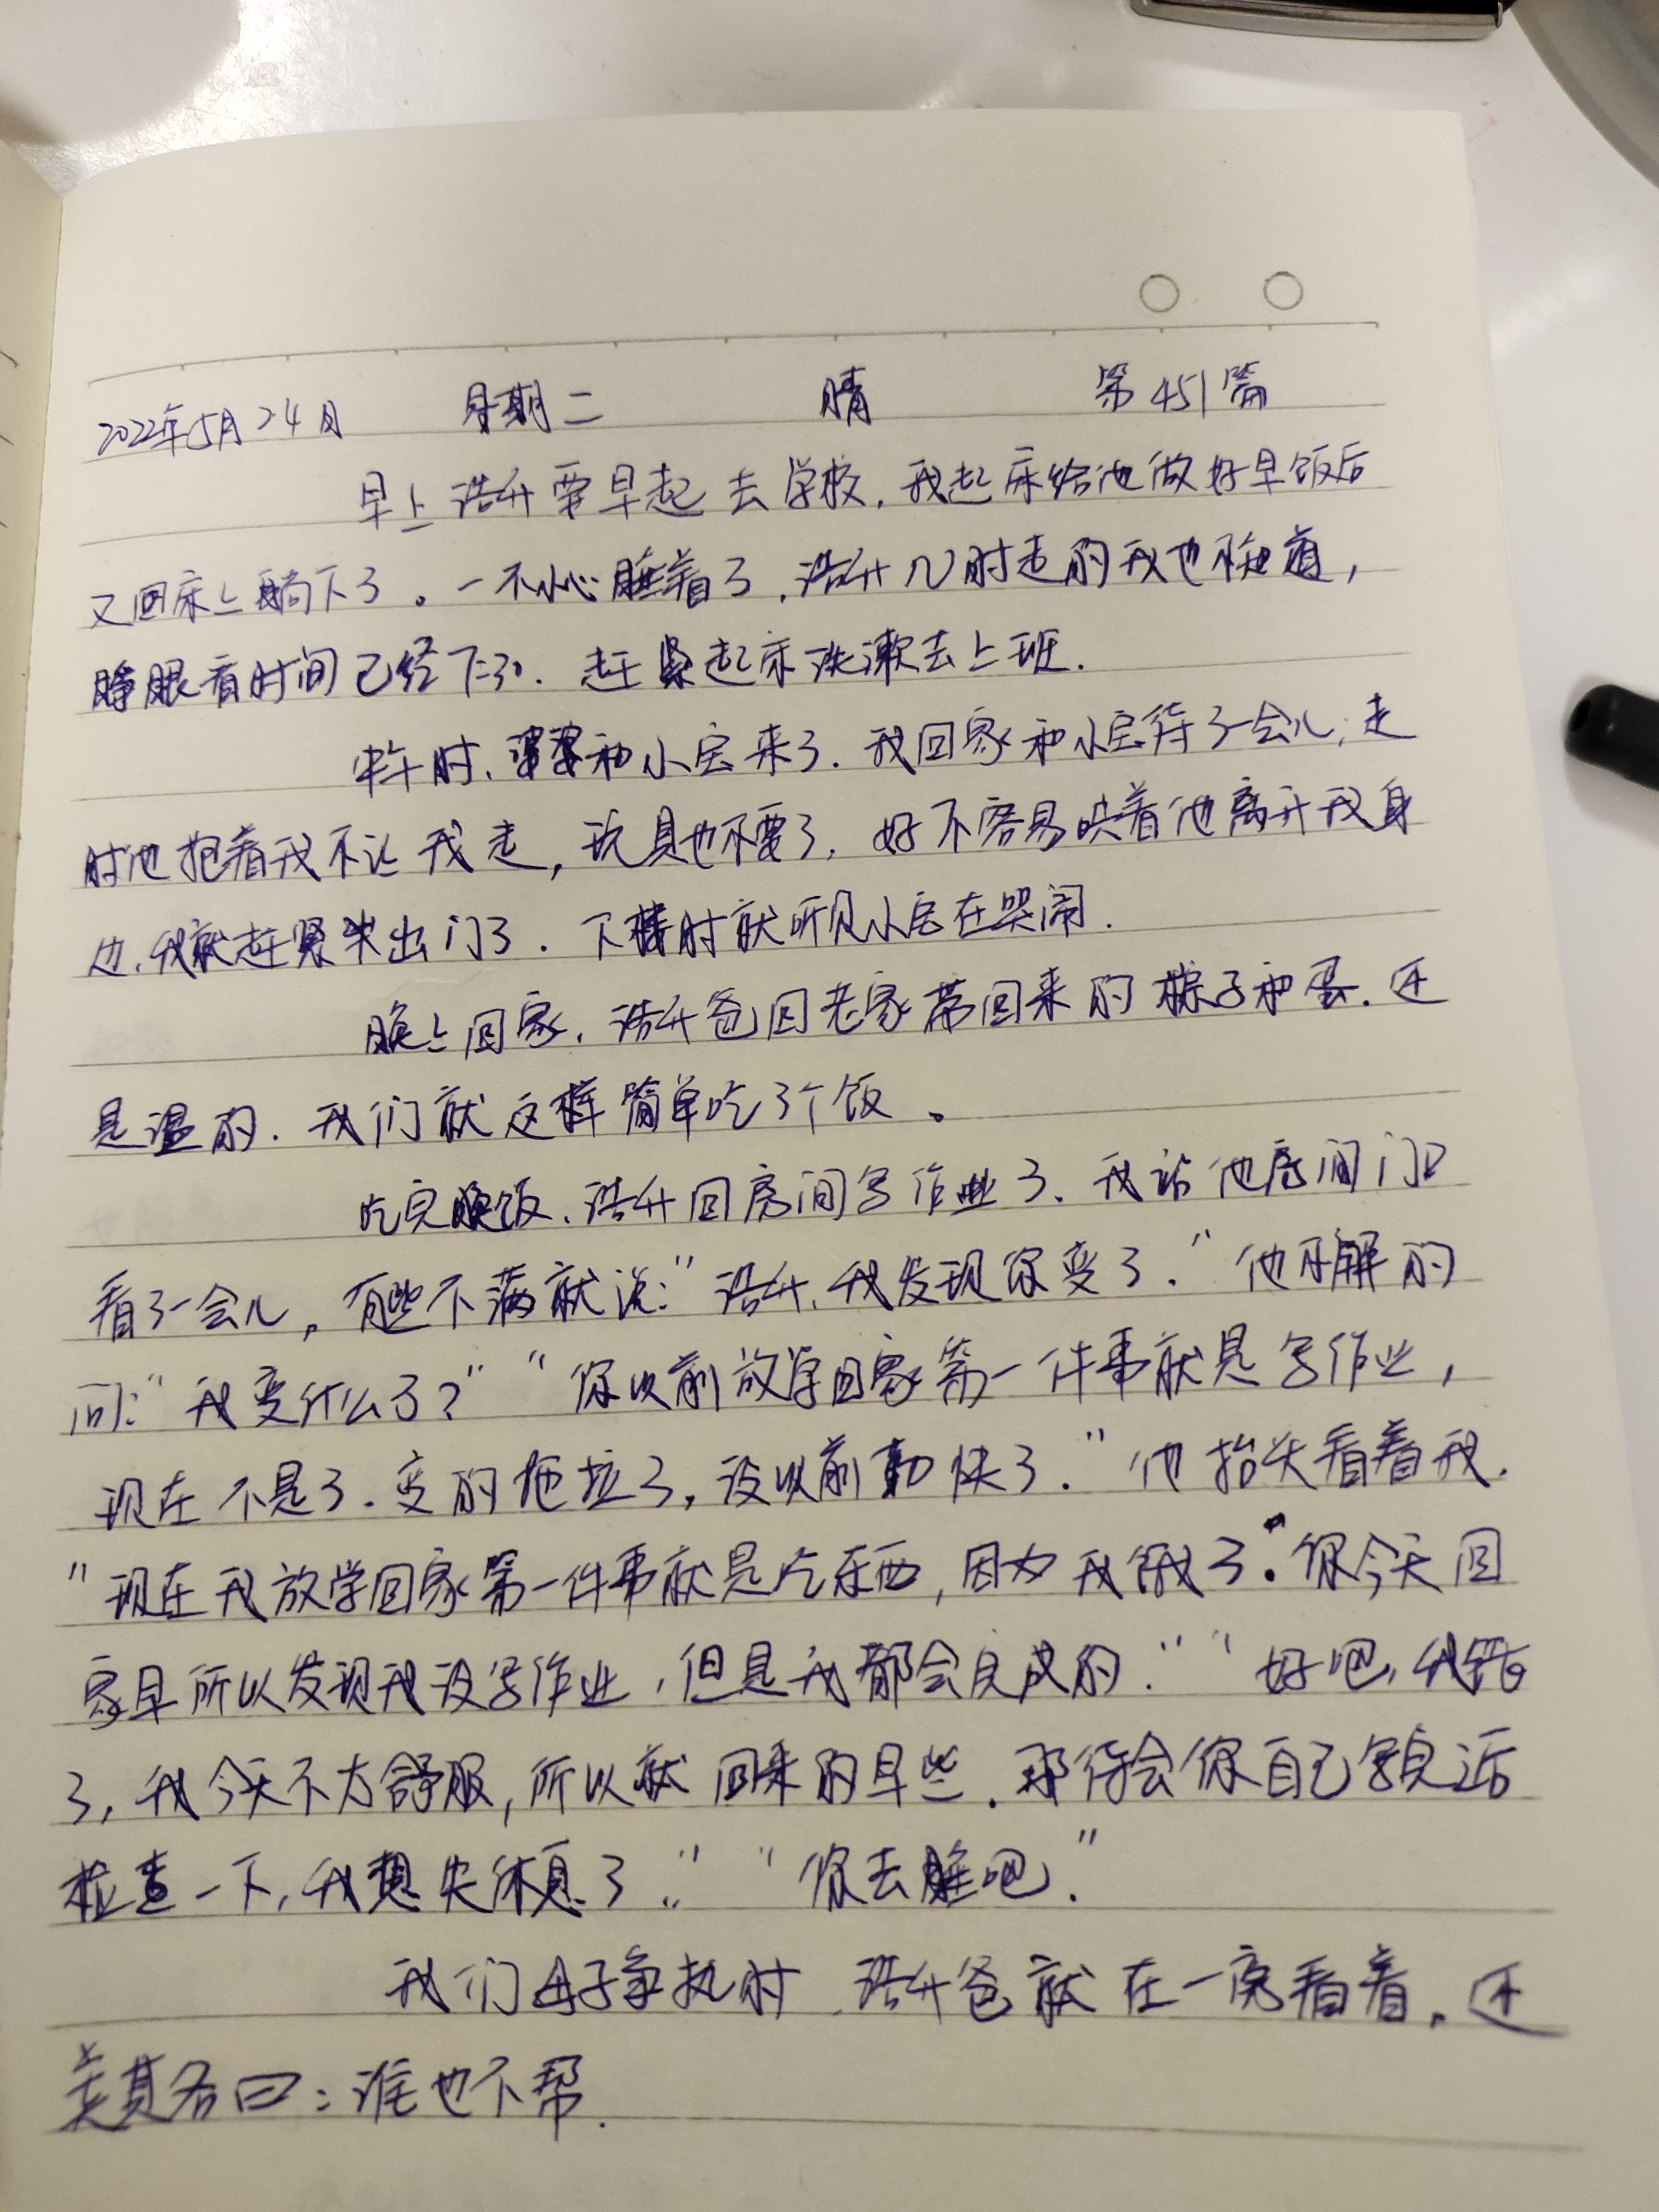 2022年5月24日 星期二 晴 第451篇
早上浩升要早起去学校，我起床给他做好早饭后
又回床上躺下了。一不小心睡着了，浩升几时走的我也不知道，
睁眼看时间已经7:30. 赶紧起床洗漱去上班.
中午时、婆婆和小宝来了. 我回家和小宝待了一会儿，走
时他抱着我不让我走，玩具也不要了，好不容易哄着他离开我身
边，我就赶紧出门了. 下楼时就听见小宝在哭闹.
晚上回家，浩升爸回老家带回来的粽子和蛋. 还
是温的. 我们就这样简单吃了个饭。
吃完晚饭、浩升回房间写作业了、我站他房间门口
看了一会儿，有些不满就说:“浩升，我发现你变了.”他不解的
问:“我变什么了?”“你以前放学回家第一件事就是写作业，
现在不是了. 变的拖拉了，没以前勤快了.”他抬头看着我.
“现在我放学回家第一件事就是吃东西，因为我饿了. 你今天回
家早所以发现我没写作业，但是我都会完成的.”“好吧，我错
了，我今天不太舒服，所以就回来的早些. 那待会你自己写完后
检查一下，我想先休息了.”“你去睡吧.”
我们母子争执时，浩升爸就在一旁看着. 还
美其名曰：谁也不帮.